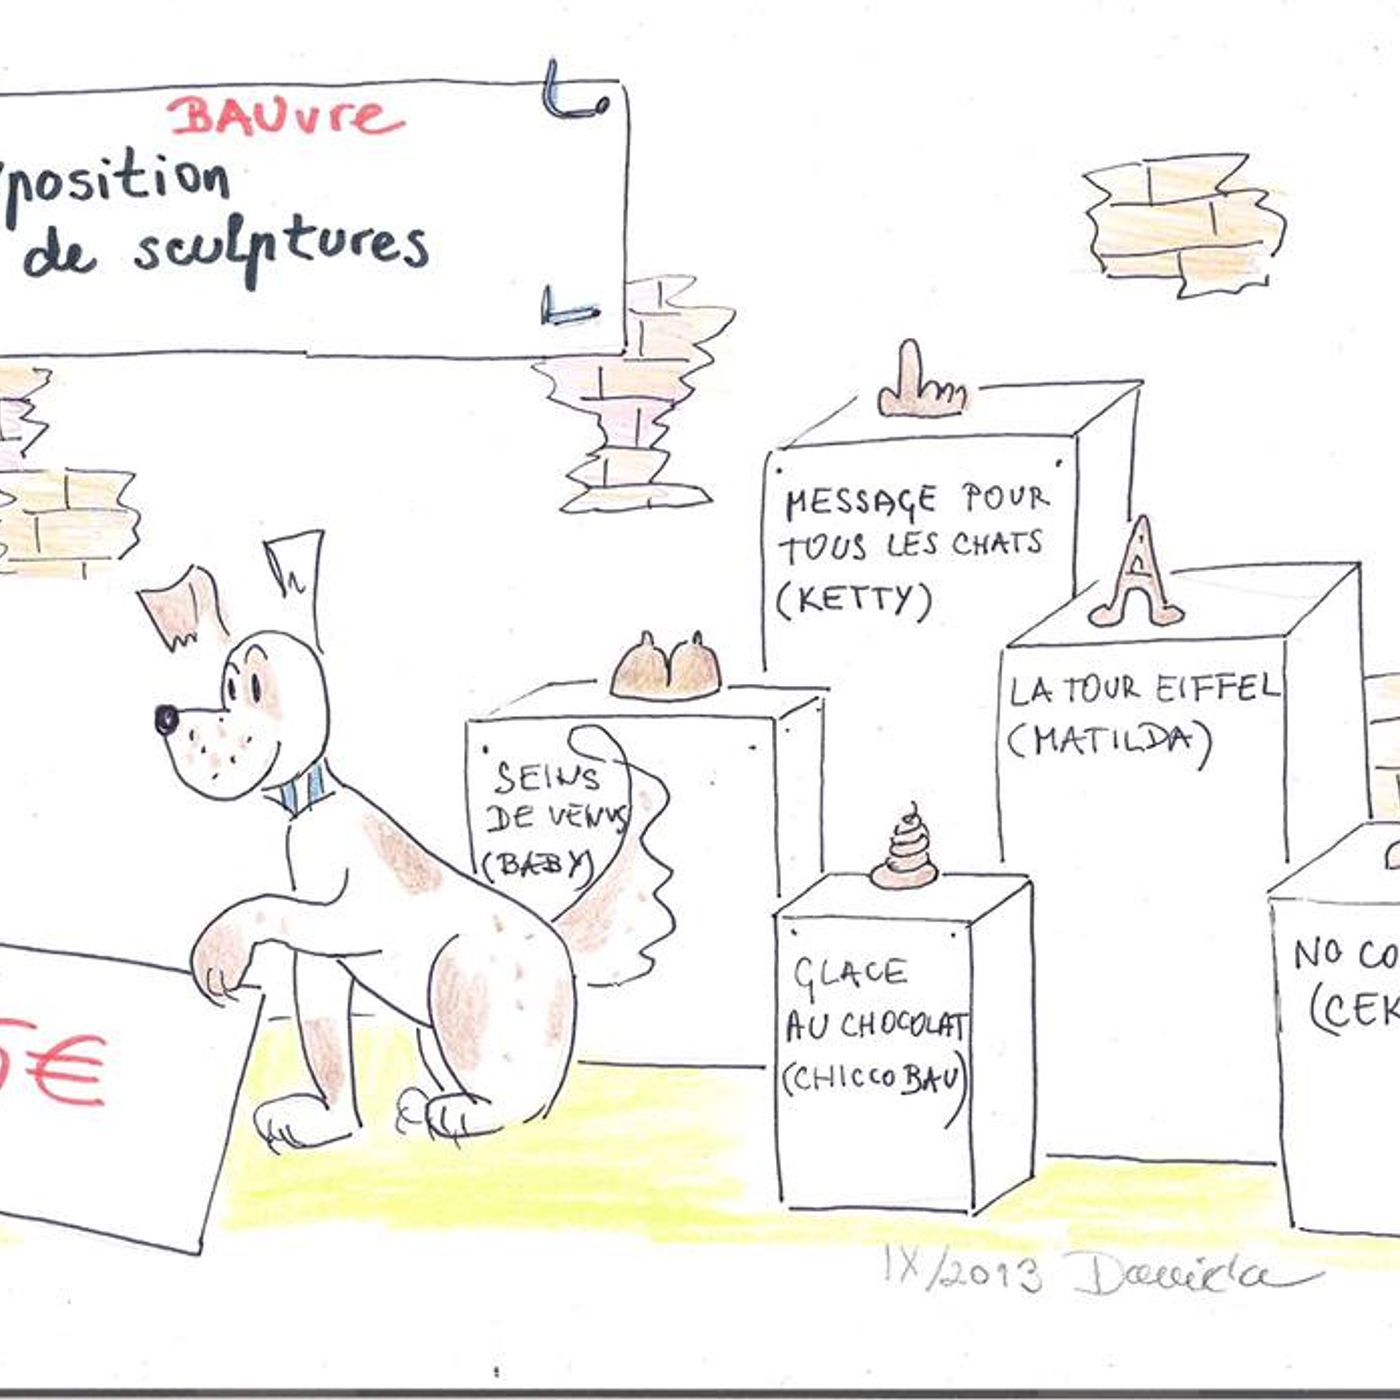 BAUvre
position
de sculptures
MESSAGE POUR
TOUS LES CHATS
(KETTY)
LA TOUR EIFFEL
(MATILDA)
SEINS
DE VENUS
(BABY)
GLACE
AU CHOCOLAT
(CHICCO BAU)
NO CO
(CEK
5€
IX/2013 Daniela